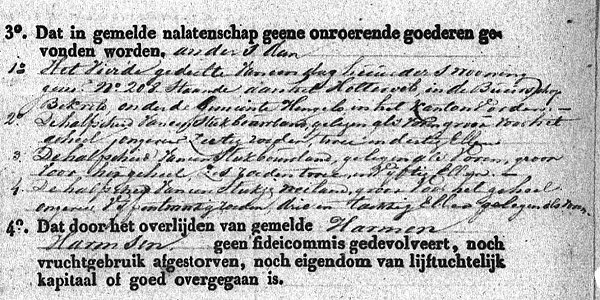 3°. Dat in gemelde nalatenschap geene onroerende goederen ge-
vonden worden, anders dan
1° Het Vierde gedeelte Van een daglooijerswooning
gem: N° 208 Staande aan het in de Buurschap
Bekveld onder de Gemeente Hengelo in het kanton Vorden. —
2° De halfscheid Van een Stuk bouwland, gelegen als Voren groot Voor het
geheel ongeveer Zestig roeden, twee en dertig Ellen
3 De halfscheid Van een Stuk bouwland, gelegen als Voren, groot
Voor het geheel Zes roeden twee en Vijftig Ellen —
4 De halfscheid Van een Stuk weiland, groot Voor het geheel
ongeveer Vijf en twintig roeden drie en tachtig Ellen gelegen als Voren.
4°. Dat door het overlijden van gemelde Harmen
Harmsen geen fideicommis gedevolveert, noch
vruchtgebruik afgestorven, noch eigendom van lijftuchtelijk
kapitaal of goed overgegaan is.